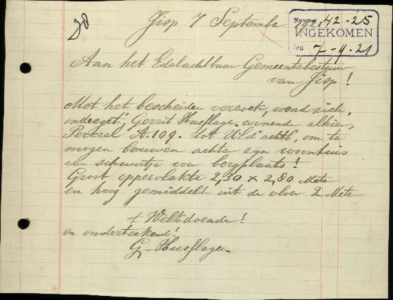 Jisp 7 September
Nummer 42-25
INGEKOMEN
7-9-21
Aan het Edelachtbaar Gemeentebestuur
van Jisp!
Met het bescheiden verzoek, wend zich
ondergete; Gerrit Husslage, wonende alhier,
Perceel A.109. tot UEd achtb, om te
mogen bouwen achter zijn woonhuis
een schuurtje van bergplaats!
Groot oppervlakte 2,50 x 2,80 Mete
en hoog gemiddelt uit de vloer 2 Mete
Weldoende!
en ondertekend!
G. Husslage